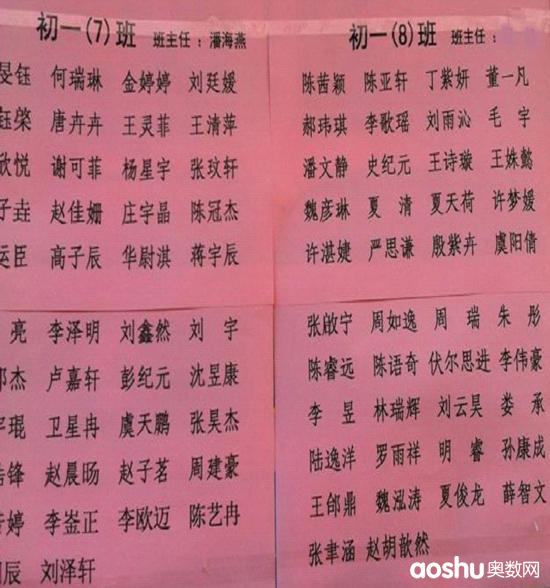 初一(7)班 班主任：潘海燕
钰 何瑞琳 金婷婷 刘廷媛
钰荣 唐卉卉 王灵菲 王清萍
欣悦 谢可菲 杨星宇 张玟轩
子垚 赵佳姗 庄宇晶 陈冠杰
运臣 高子辰 华尉淇 蒋宇辰
亮 李泽明 刘鑫然 刘宇
杰 卢嘉轩 彭纪元 沈昱康
琨 卫星冉 虞天鹏 张昊杰
锋 赵晨旸 赵子茗 周建豪
婷 李崟正 李欧迈 陈艺冉
辰 刘泽轩
初一(8)班 班主任：
陈茜颖 陈亚轩 丁紫妍 董一凡
郝玮琪 李歌瑶 刘雨沁 毛宇
潘文静 史纪元 王诗璇 王姝懿
魏彦琳 夏清 夏天荷 许梦媛
许湛婕 严思谦 殷紫卉 虞阳倩
张啟宁 周如逸 周瑞 朱彤
陈睿远 陈语奇 伏尔思进 李伟豪
李昱 林瑞辉 刘云昊 娄承
陆逸洋 罗雨祥 明睿 孙康成
王郃鼎 魏泓涛 夏俊龙 薛智文
张聿涵 赵胡歆然
aoshu奥数网